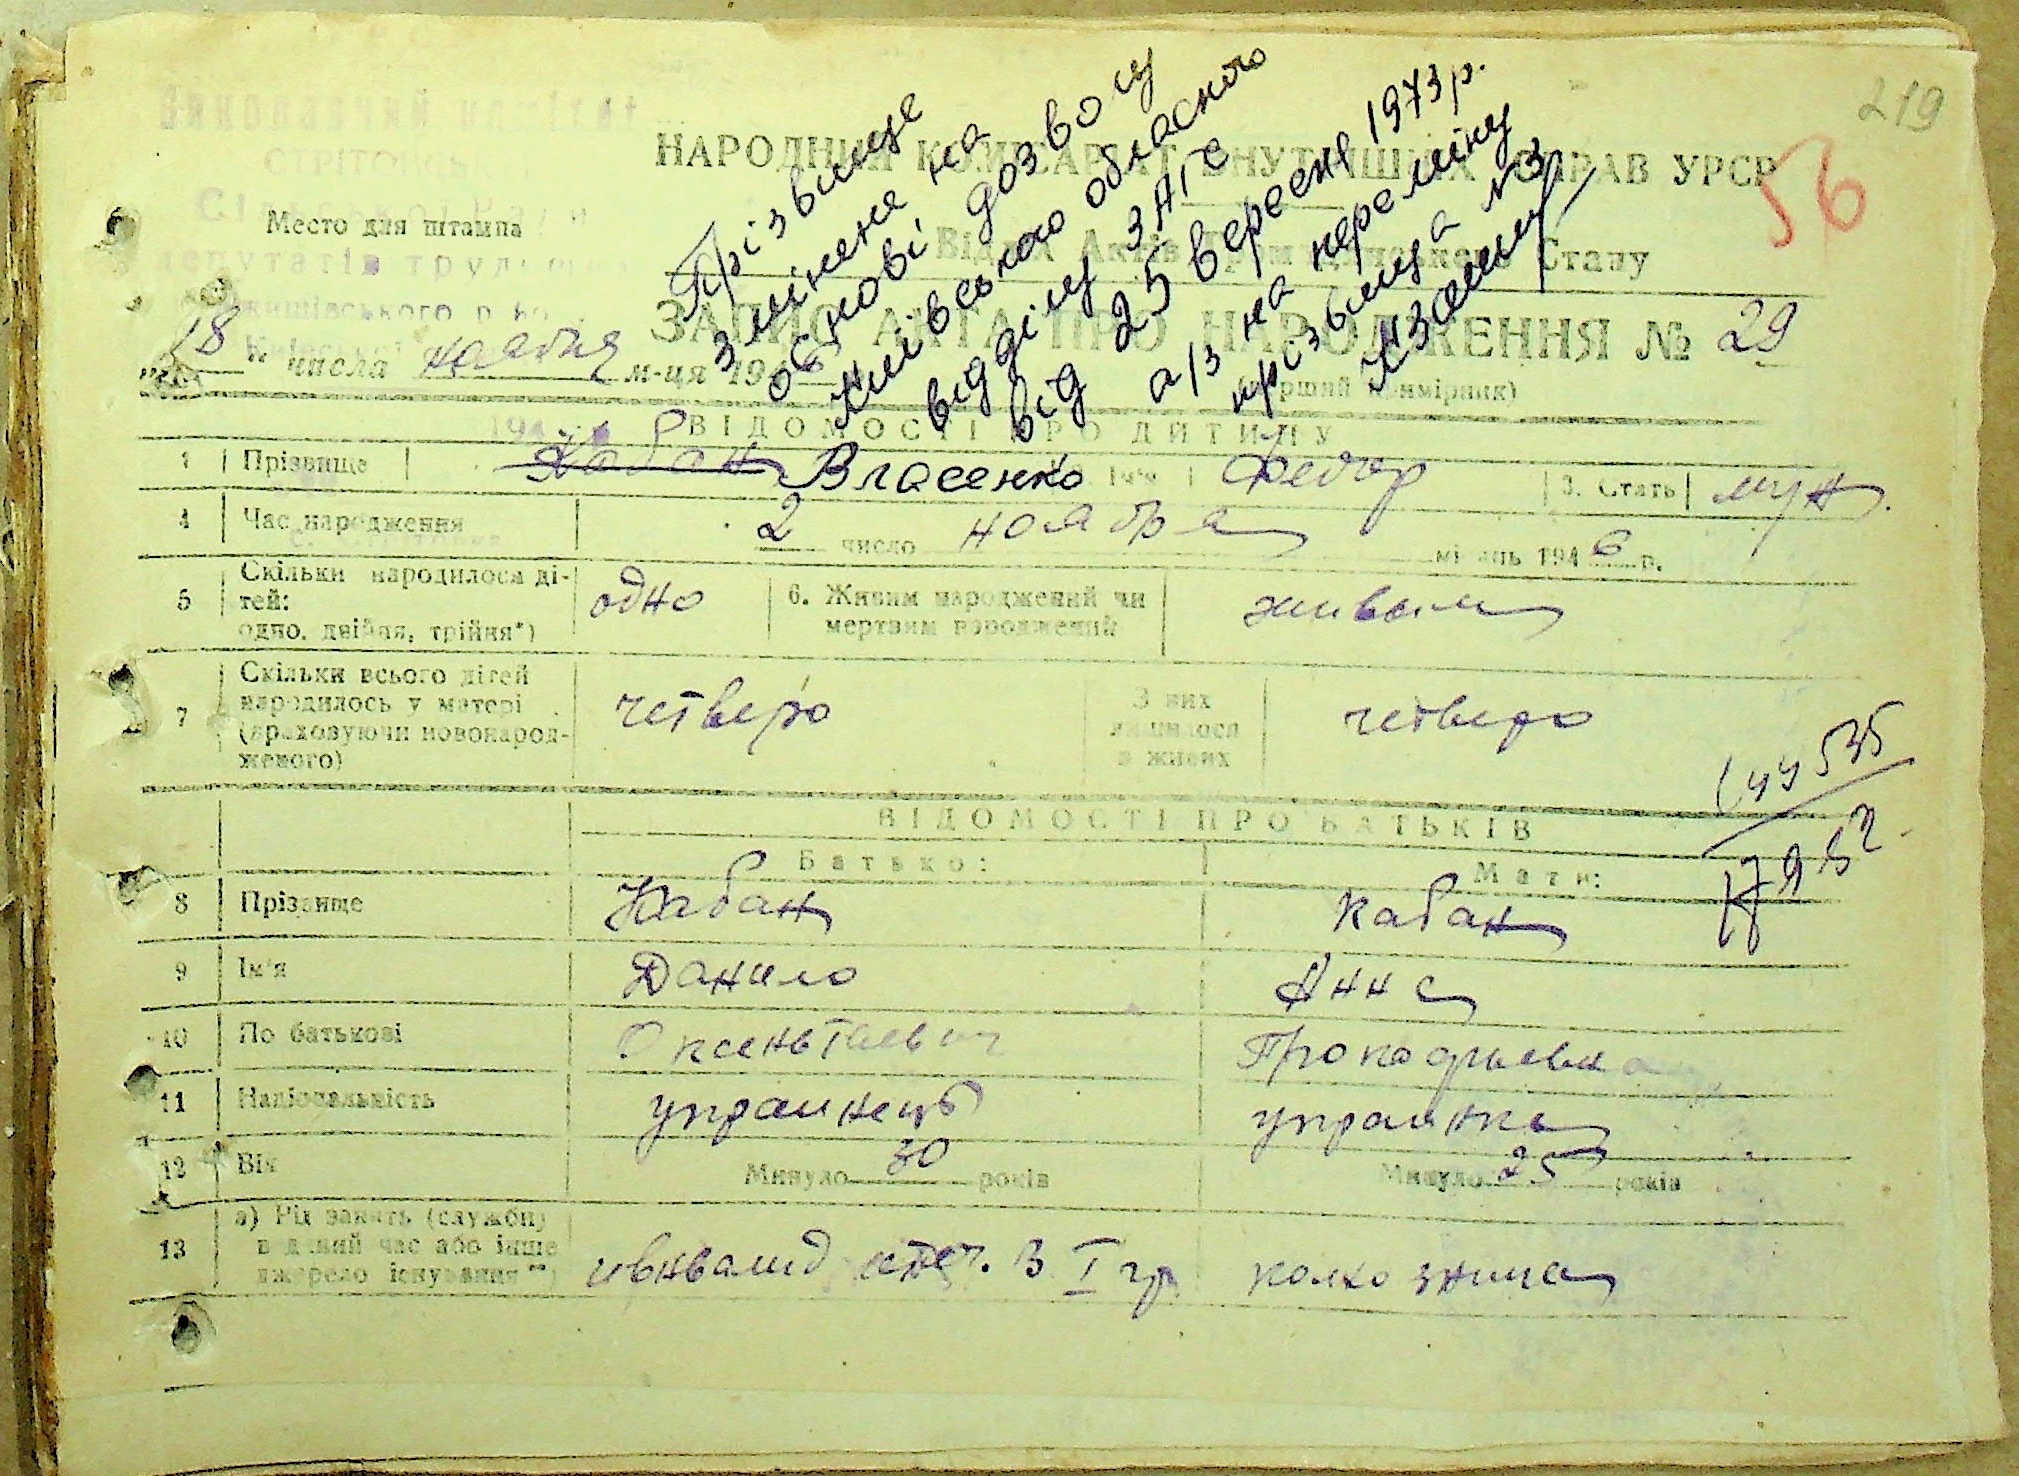 219
56
Виконавчий комітет
Сільської Ради
депутатів трудящих
Место для штампа
НАРОДНИЙ КОМІСАРІАТ ВНУТРІШНІХ СПРАВ УРСР
Відділ Актів Громадянського Стану
ЗАПИС АКТА ПРО НАРОДЖЕННЯ № 29
(перший примірник)
"18" числа ноября м-ця 1946
Прізвище
змінене на
основі дозволу
Київського обласного
відділу ЗАГС
від 25 вересня 1973 р.
а/з на переміну
прізвища № 3
ВІДОМОСТІ ПРО ДИТИНУ
1 Прізвище Кабан Власенко Ім'я Федор 3. Стать муж.
4 Час народження 2 число ноября місяць 1946 р.
5 Скільки народилося ді-
тей:
одно, двійня, трійня*) одно 6. Живим народжений чи
мертвим народжений живым
7 Скільки всього дітей
народилось у матері
(враховуючи новонарод-
женого) четверо З них
лишилося
в живих четверо
535
ВІДОМОСТІ ПРО БАТЬКІВ
Батько: Мати:
8 Прізвище Кабан Кабан
9 Ім'я Данило Анна
10 По батькові Оксентиевич Прокофьевна
11 Національність украинець украинка
12 Вік Минуло 30 років Минуло 25 років
13 а) Рід занять (служби)
в даний час або інше
джерело існування**) инвалид отеч. В I гр колхозница